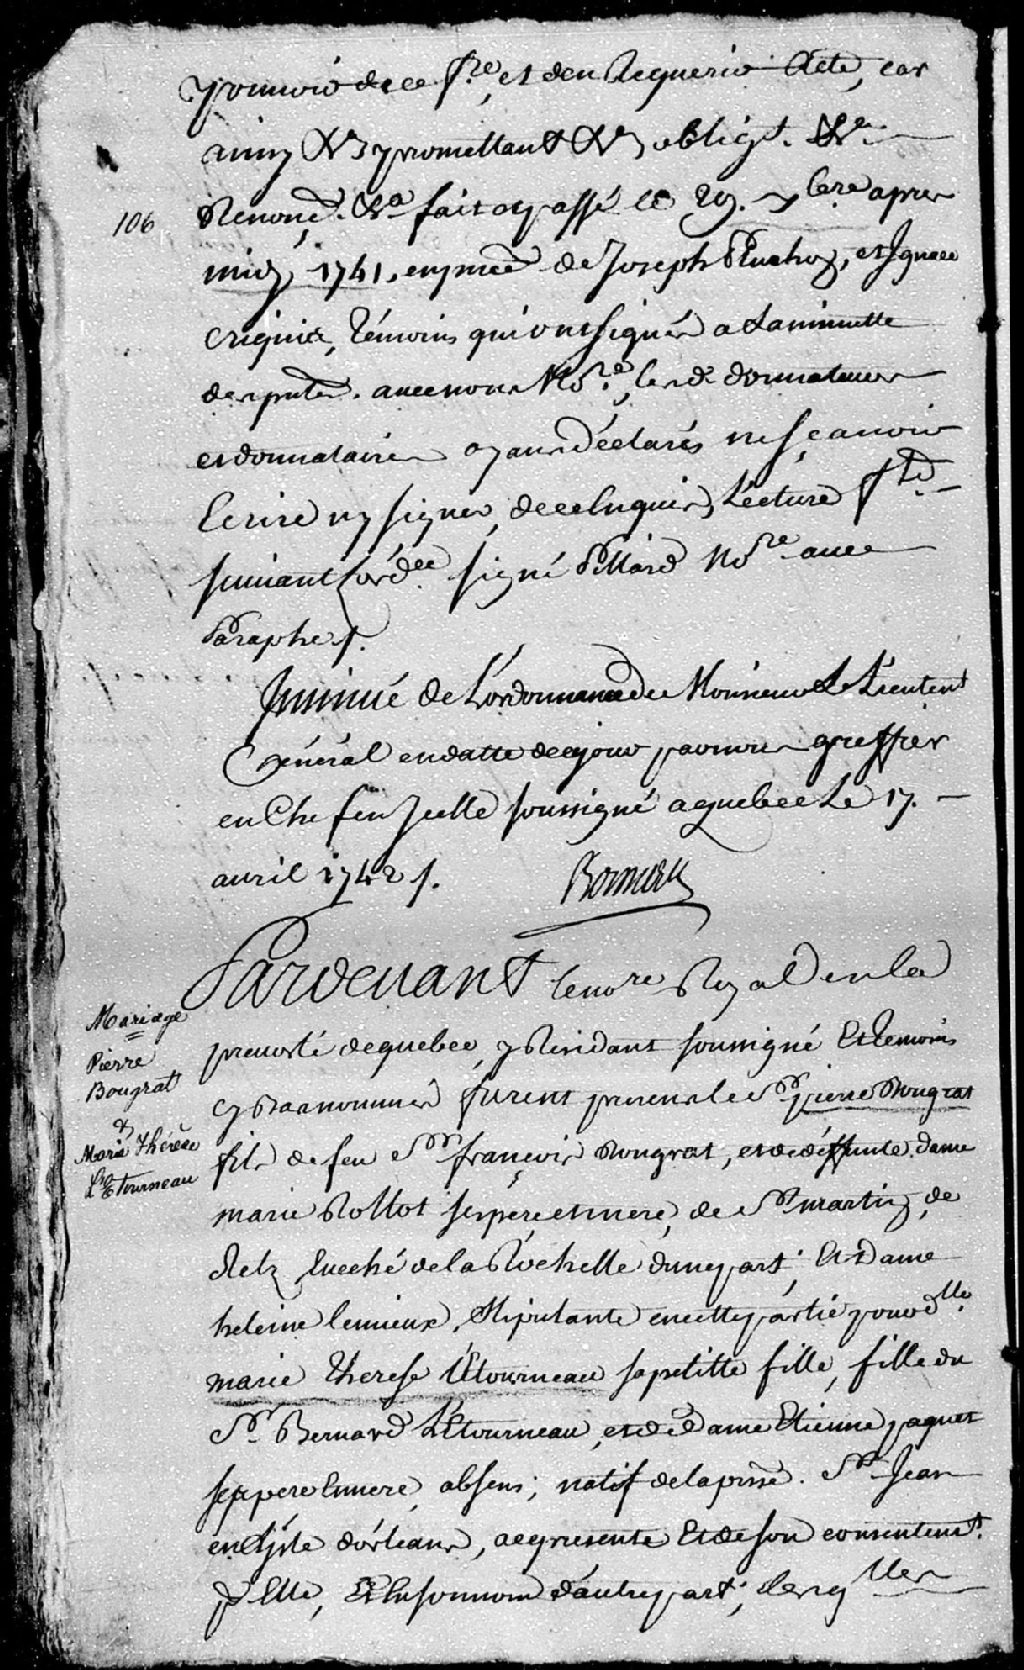 pouvoir de ce f.re, et d'en Requerir Acte, car
ainsy &a promettant &a obligt. &a
106 Renonçt. &a fait et passé le 29. 7bre apres
midy 1741, en pnce de Joseph et Ignace
témoins qui ont signés a la minutte
des pntes. avec nous No.re, lesd. donnateurs
et donnataires ayans déclarés ne sçavoir
Ecrire ny signer, de ce Enquis, Lecture fte
suivant l'ordce signé Pillard No.re avec
Paraphe /.
Insinué de L'ordonnance de Monsieur Le Lieutent
Général en datte de ce jour par nous greffier
en Chef en Icelle soussigné a quebec Le 17.
avril 1742 /.
Boisseau
Pardevant Le nore Royal en la
Mariage
Pierre
Bougrat
&
Marie Thérèse
LEtourneau
prevosté de quebec, y Residant soussigné Et temoins
cy Bas nommés furent presens le Sr. pierre Bougrat
fils de feu Sr. françois Bougrat, et de deffunte Dame
marie Rollot ses pere et mere, de St. martin, de
Retz Eveché de la Rochelle d'une part; Et Dame
heleine lemieux, Stipulante en cette partie pour dlle
marie therese L'Etourneau sa petitte fille, fille du
Sr. Bernard L'Etourneau, et de Dame Etienne paquet
ses pere Et mere absens; natif de la prsse. St. Jean
en L'isle d'orleans, a ce presente Et de son consentemt.
p.r Elle, Et En son nom d'autre part; lesqlles